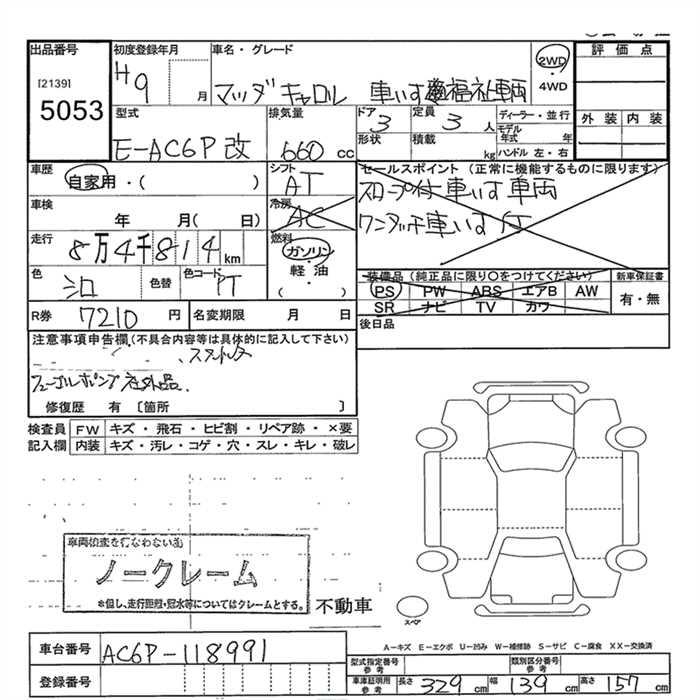 出品番号 初度登録年月 車名・グレード 2WD・4WD 評価点
[2139]
5053
H9 月 マツダ キャロル 車いす 福祉車両
型式 排気量 ドア 定員 ディーラー・並行 外装 内装
E-AC6P改 660 cc 3 3 人 モデル年式 年
形状 積載 kg ハンドル 左・右
車歴 シフト セールスポイント (正常に機能するものに限ります)
自家用・( ) AT スロープ付車いす車両
車検 年 月( 日) 冷房 AC ワンタッチ車いす
走行 8万4千814km 燃料 ガソリン・軽油・( )
色 シロ 色替 色コード PT
装備品 (純正品に限り○をつけてください) 新車保証書
PS PW ABS エアB AW 有・無
SR ナビ TV カワ
R券 7210 円 名変期限 月 日 後日品
注意事項申告欄 (不具合内容等は具体的に記入して下さい)
フューエルポンプ社外品
修復歴 有 [箇所 ]
検査員 FW キズ・飛石・ヒビ割・リペア跡・×要
記入欄 内装 キズ・汚レ・コゲ・穴・スレ・キレ・破レ
車両検査を行なわない為
ノークレーム
*但し、走行距離・冠水等についてはクレームとする。
不動車
スペア
A-キズ E-エクボ U-凹み W-補修跡 S-サビ C-腐食 XX-交換済
車台番号 AC6P-118991
型式指定番号 参考 類別区分番号 参考
登録番号 車庫証明用 参考 長さ 329 cm 幅 139 cm 高さ 157 cm